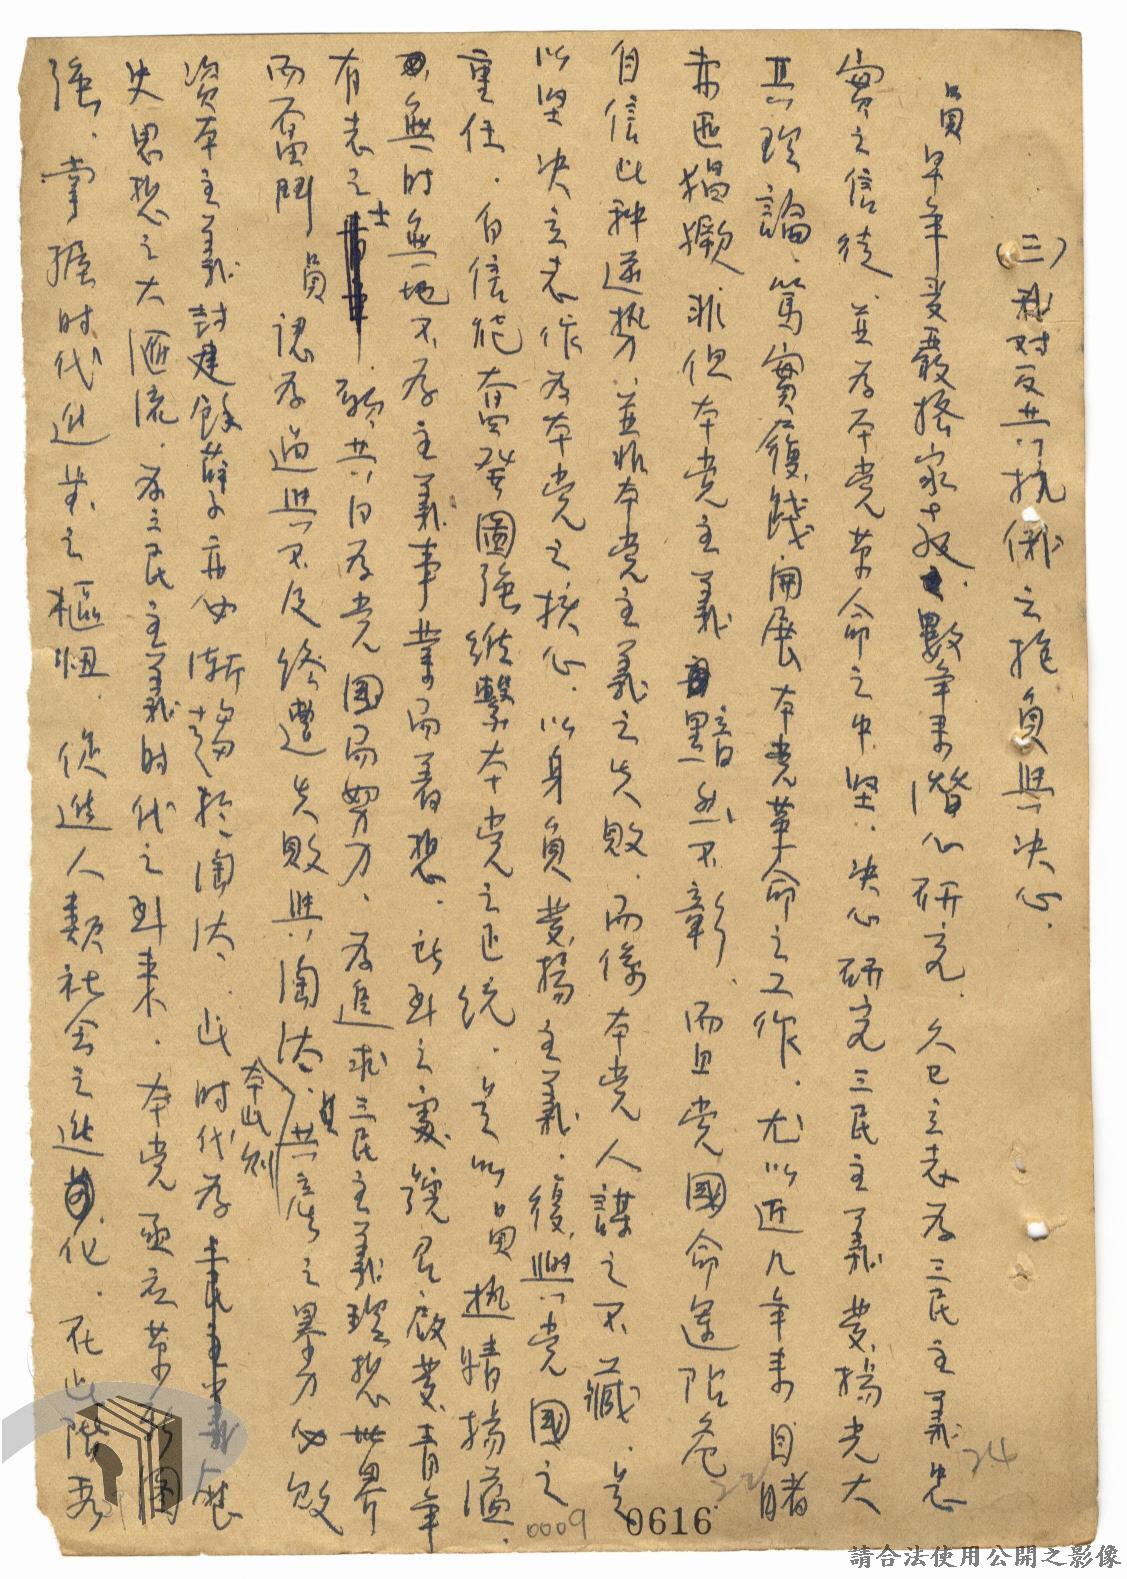 (三)我对反共抗俄之抱負與决心.
員早年受嚴格家教.數年来潛心研究.久已立志为三民主義忠
實之信徒.並为本党革命之中堅.决心研究三民主義發揚光大
其理論.篤實履踐開展本党革命之工作.尤以近几年来目睹
赤匪猖獗.非但本党主義黯然不彰.而且党國命運阽危
自信此种逆势.並非本党主義之失敗.而係本党人謀之不臧.是
以坚决立志作为本党之核心.以身負發揚主義.復興党國之
重任.自信能奋發圖强継繫本党之正統.是以員热情揚溢.
無时無地不为主義事業而着想.所到之處繞召啟發青年
有志之士.献共日为党国而努力.为追求三民主義理想世界
而奋鬥.員認为過與不及終遭失敗與淘汰.共產之暴力必敗
資本主義封建餘孽亦必漸趨於淘汰.此时代为歷
本此則
史思想之大滙流.为三民主義时代之到来.本党亟应革新圖
强.掌握时代進步之樞杻.促進人類社会之進化.在此階段
24
0009
0616
請合法使用公開之影像